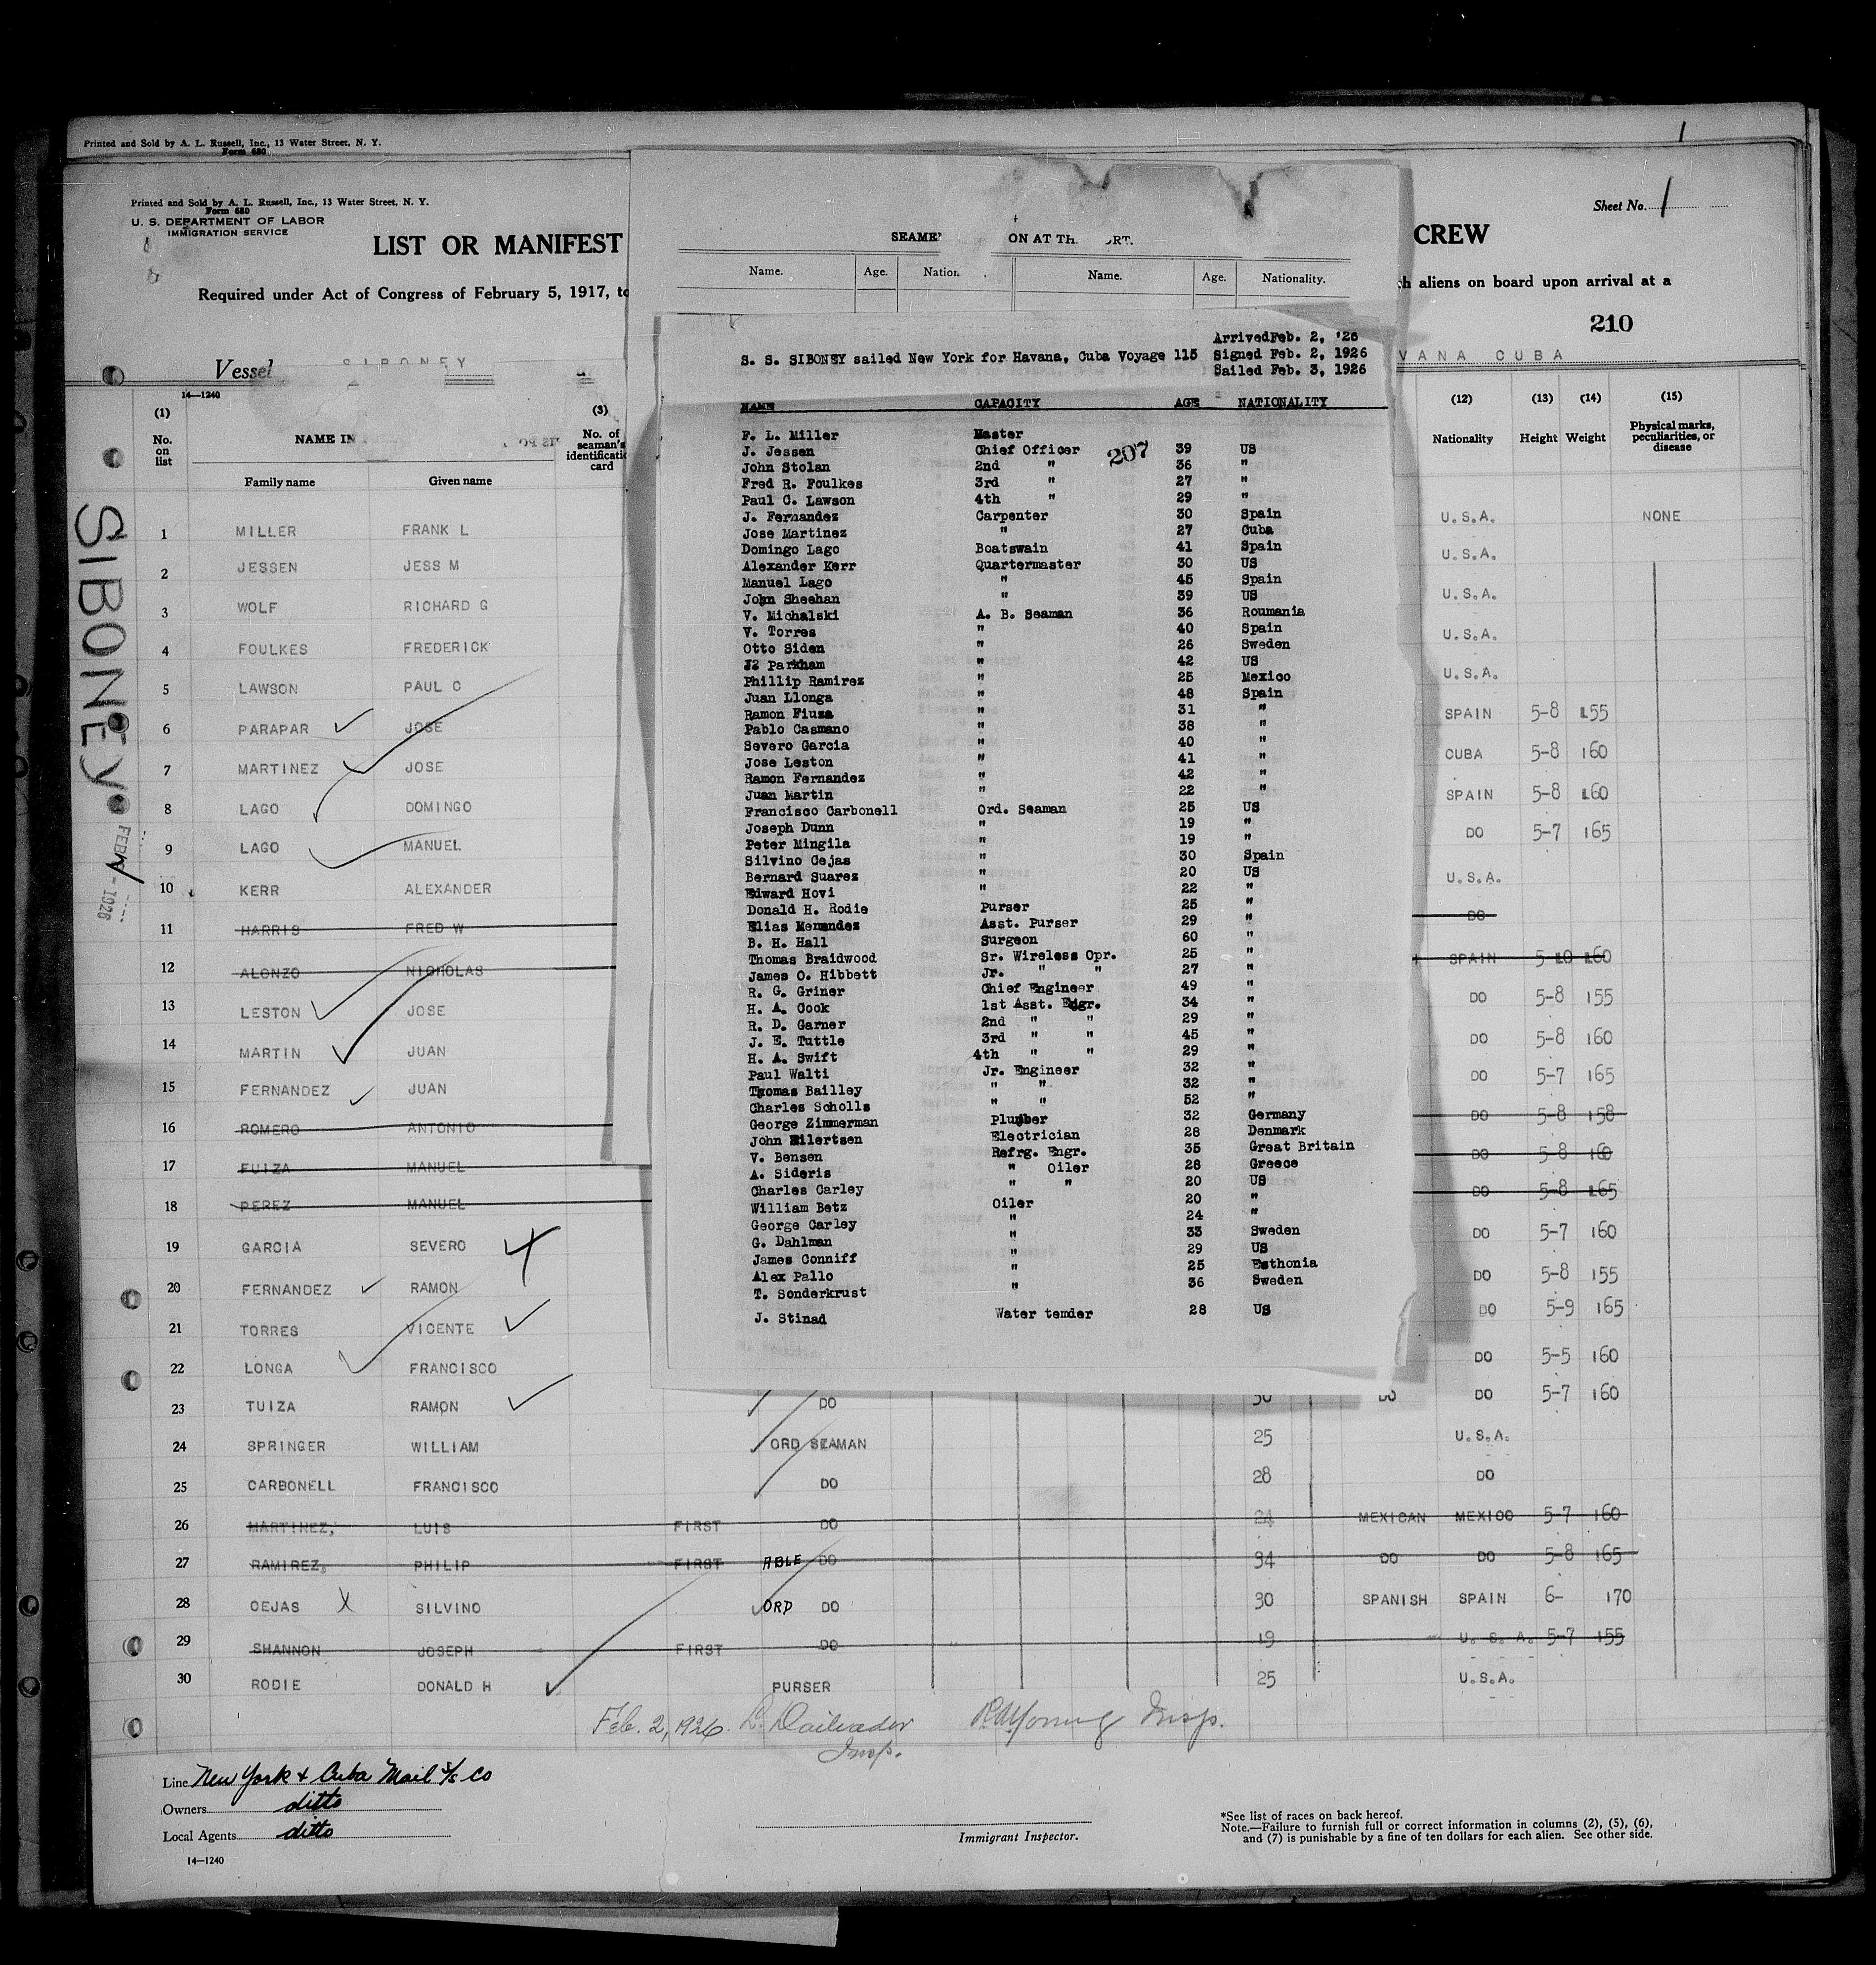 Printed and Sold by A. L. Russell, Inc., 13 Water Street, N. Y.
Form 680
1
Printed and Sold by A. L. Russell, Inc., 13 Water Street, N. Y.
Form 680
U. S. DEPARTMENT OF LABOR
IMMIGRATION SERVICE
Sheet No. 1
LIST OR MANIFEST CREW
Required under Act of Congress of February 5, 1917, to ch aliens on board upon arrival at a
210
Vessel SIBONEY VANA CUBA
14—1240
SEAME ON AT TH RT.
Name. Age. Nation . Name. Age. Nationality.
S. S. SIBONEY sailed New York for Havana, Cuba Voyage 115
ArrivedFeb. 2, '26
Signed Feb. 2, 1926
Sailed Feb. 3, 1926
NAME CAPACITY AGE NATIONALITY
207
F. L. Miller Master
J. Jessen Chief Officer 39 US
John Stolan 2nd " 36 "
Fred R. Foulkes 3rd " 27 "
Paul C. Lawson 4th " 29 "
J. Fernandez Carpenter 30 Spain
Jose Martinez " 27 Cuba
Domingo Lago Boatswain 41 Spain
Alexander Kerr Quartermaster 30 US
Manuel Lago " 45 Spain
John Sheehan " 39 US
V. Michalski A. B. Seaman 36 Roumania
V. Torres " 40 Spain
Otto Siden " 26 Sweden
Parkham " 42 US
Phillip Ramirez " 25 Mexico
Juan Llonga " 48 Spain
Ramon Fiuza " 31 "
Pablo Casmano " 38 "
Severo Garcia " 40 "
Jose Leston " 41 "
Ramon Fernandez " 42 "
Juan Martin " 22 "
Francisco Carbonell Ord. Seaman 25 US
Joseph Dunn " 19 "
Peter Mingila " 19 "
Silvino Cejas " 30 Spain
Bernard Suarez " 20 US
Edward Hovi " 22 "
Donald H. Rodie Purser 25 "
Elias Menendez Asst. Purser 29 "
B. H. Hall Surgeon 60 "
Thomas Braidwood Sr. Wireless Opr. 25 "
James O. Hibbett Jr. " " 27 "
R. G. Griner Chief Engineer 49 "
H. A. Cook 1st Asst. Engr. 34 "
R. D. Garner 2nd " " 29 "
J. E. Tuttle 3rd " " 45 "
H. A. Swift 4th " " 29 "
Paul Walti Jr. Engineer 32 "
Thomas Bailley " " 32 "
Charles Scholls " " 52 "
George Zimmerman Plumber 32 Germany
John Eilertsen Electrician 28 Denmark
V. Bensen Refrg. Engr. 35 Great Britain
A. Sideris " Oiler 28 Greece
Charles Carley " " 20 US
William Betz Oiler 20 "
George Carley " 24 "
G. Dahlman " 33 Sweden
James Conniff " 29 US
Alex Pallo " 25 Esthonia
T. Sonderkrust " 36 Sweden
J. Stinad Water tender 28 US
(1) (3) (12) (13) (14) (15)
No. on list NAME IN No. of seaman's identificatio card Nationality Height Weight Physical marks, peculiarities, or disease
Family name Given name
SIBONEY
FEB - 1926
1 MILLER FRANK L U.S.A. NONE
2 JESSEN JESS M U.S.A.
3 WOLF RICHARD G U.S.A.
4 FOULKES FREDERICK U.S.A.
5 LAWSON PAUL C U.S.A.
6 PARAPAR JOSE SPAIN 5-8 155
7 MARTINEZ JOSE CUBA 5-8 160
8 LAGO DOMINGO SPAIN 5-8 160
9 LAGO MANUEL DO 5-7 165
10 KERR ALEXANDER U.S.A.
11 HARRIS FRED W DO
12 ALONZO NICHOLAS SPAIN 5-10 160
13 LESTON JOSE DO 5-8 155
14 MARTIN JUAN DO 5-8 160
15 FERNANDEZ JUAN DO 5-7 165
16 ROMERO ANTONIO DO 5-8 158
17 FUIZA MANUEL DO 5-8 160
18 PEREZ MANUEL DO 5-8 165
19 GARCIA SEVERO DO 5-7 160
20 FERNANDEZ RAMON DO 5-8 155
21 TORRES VICENTE DO 5-9 165
22 LONGA FRANCISCO DO 5-5 160
23 TUIZA RAMON DO 30 DO DO 5-7 160
24 SPRINGER WILLIAM ORD SEAMAN 25 U.S.A.
25 CARBONELL FRANCISCO DO 28 DO
26 MARTINEZ, LUIS FIRST DO 24 MEXICAN MEXICO 5-7 160
27 RAMIREZ, PHILIP FIRST ABLE DO 34 DO DO 5-8 165
28 CEJAS SILVINO ORD DO 30 SPANISH SPAIN 6- 170
29 SHANNON JOSEPH FIRST DO 19 U. S. A. 5-7 155
30 RODIE DONALD H PURSER 25 U.S.A.
Feb. 2, 1926. Insp. Young Insp.
Line New York & Cuba Mail S/S Co
Owners ditto
Local Agents ditto
Immigrant Inspector.
*See list of races on back hereof.
Note.—Failure to furnish full or correct information in columns (2), (5), (6),
and (7) is punishable by a fine of ten dollars for each alien. See other side.
14—1240